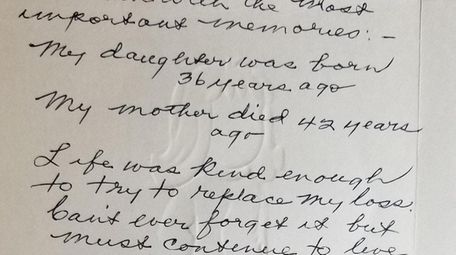 with the most
important memories:-
My daughter was born
36 years ago
My mother died 42 years
ago
Life was kind enough
to try to replace my loss.
Can't ever forget it but
must continue to live